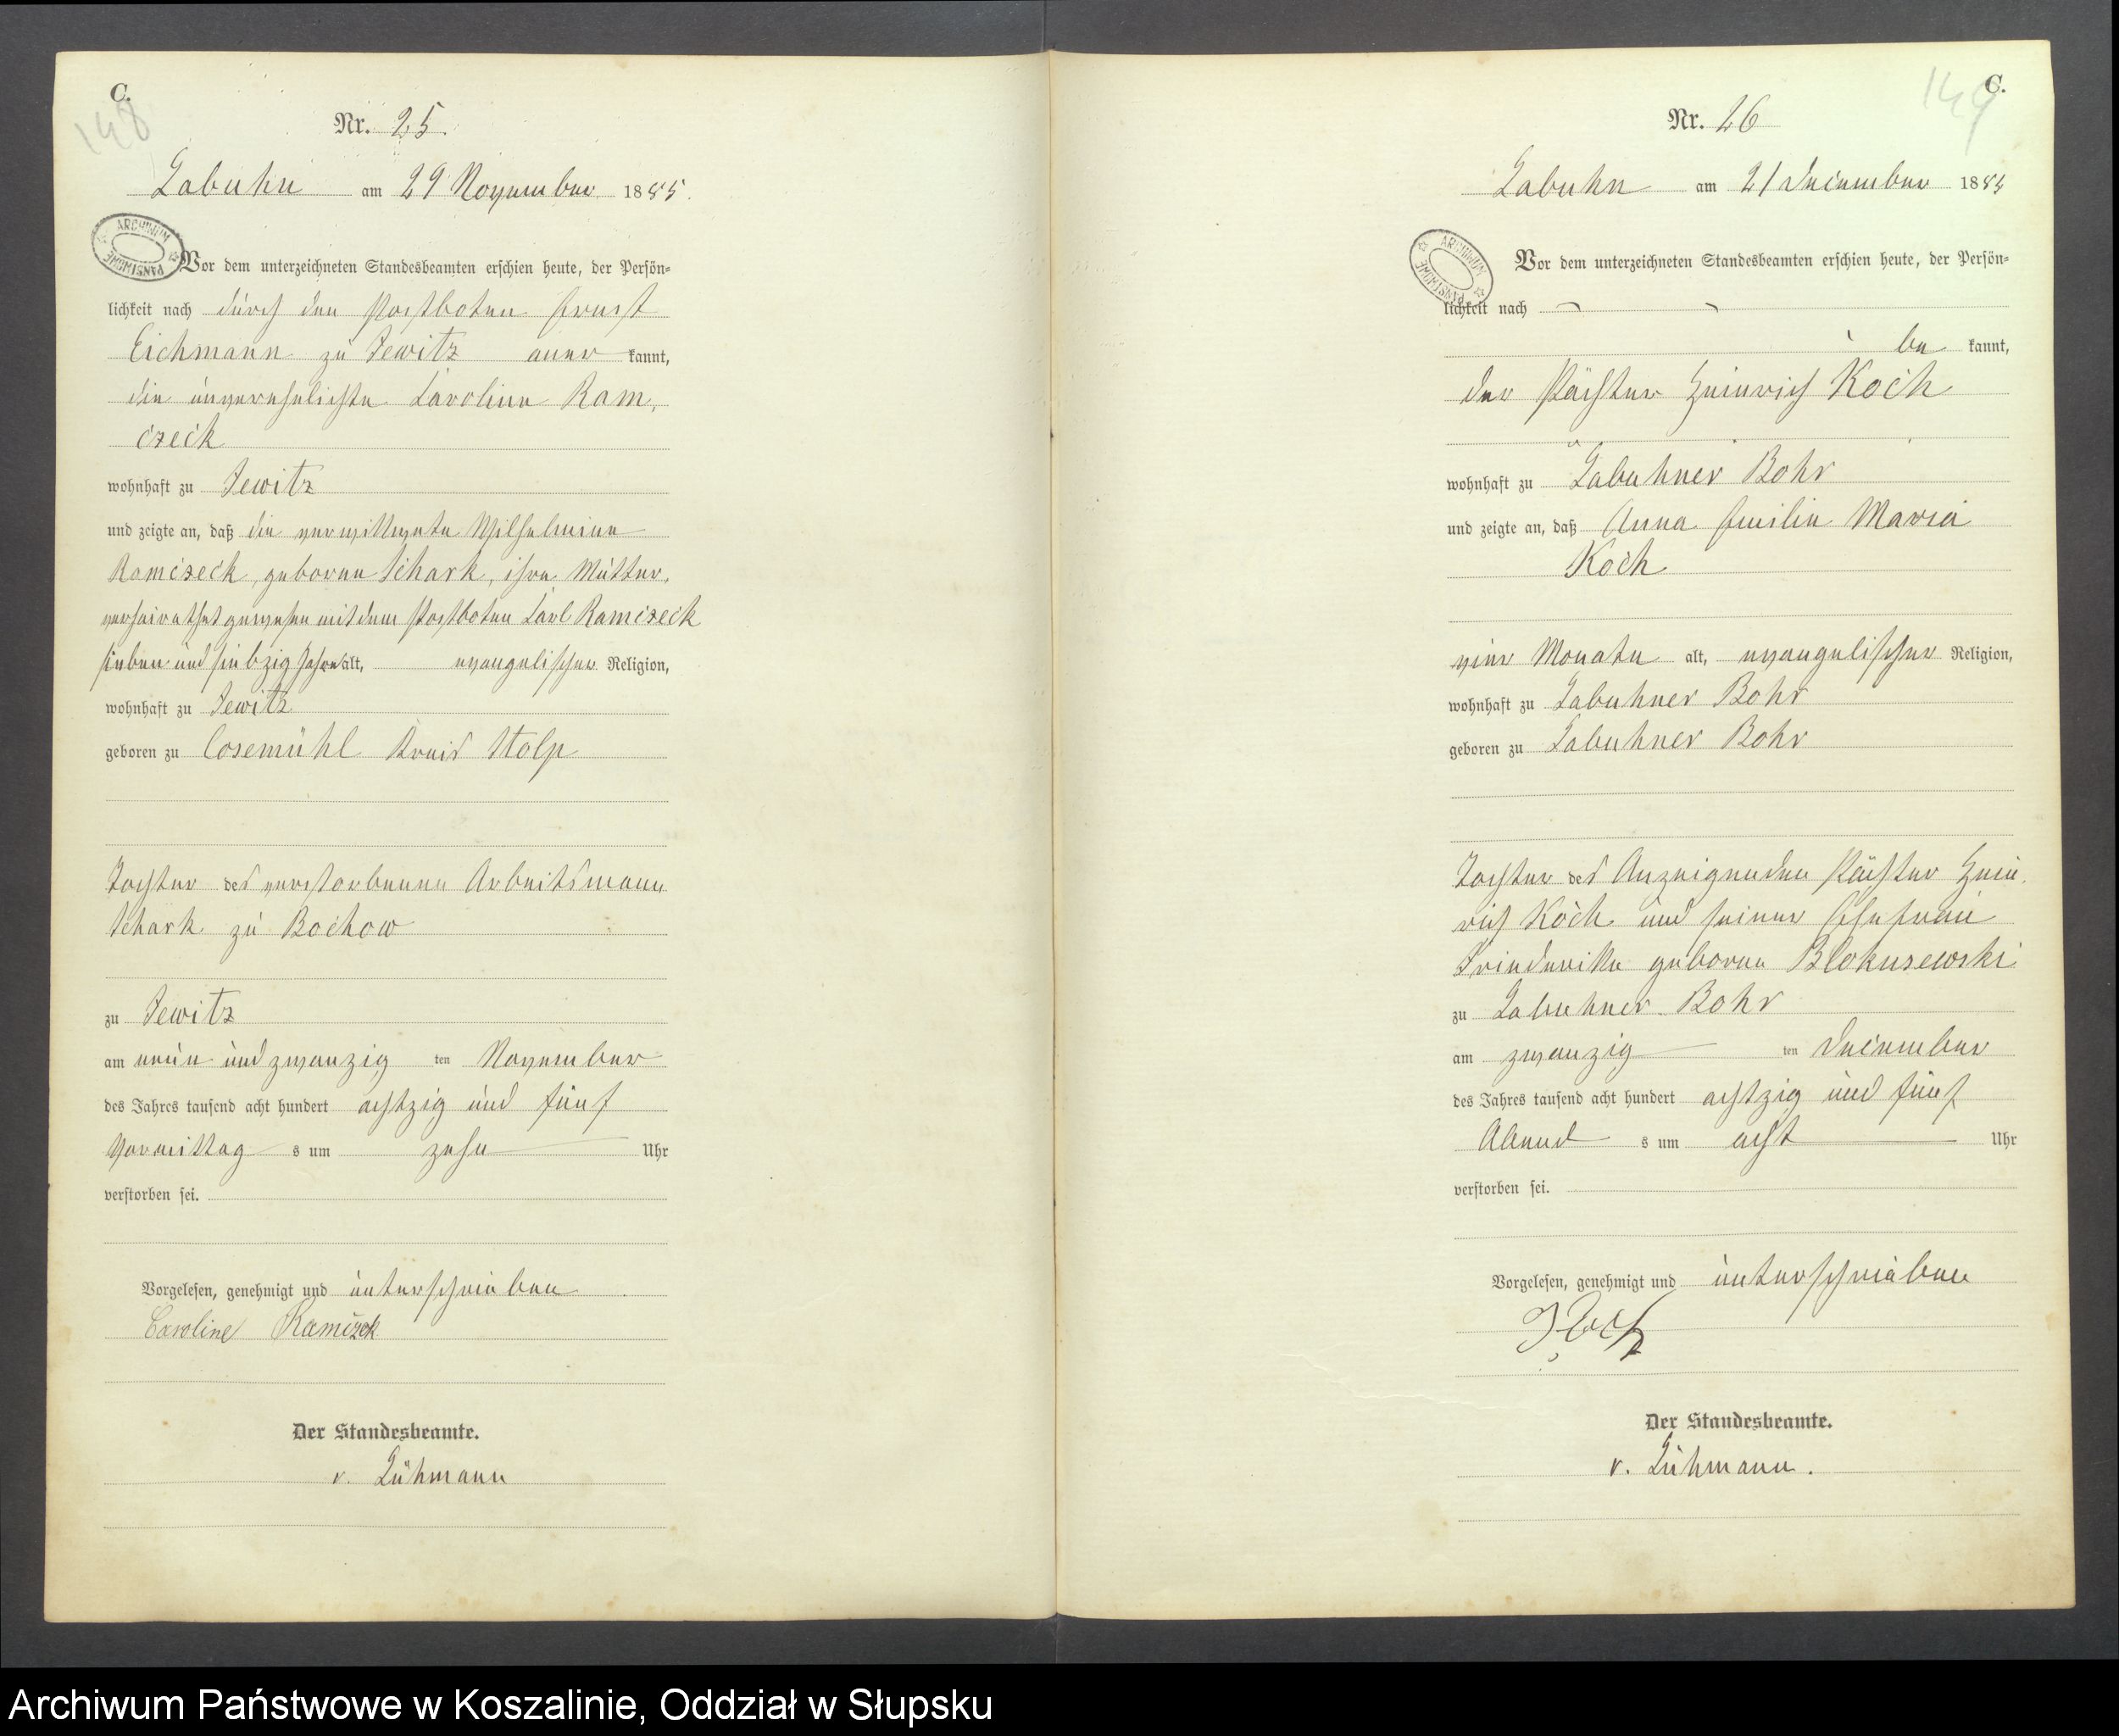 C.
148
Nr. 25.
Labuhn am 29 November 1885.
ARCHIWUM PAŃSTWOWE
Vor dem unterzeichneten Standesbeamten erschien heute, der Persön=
lichkeit nach durch den Postboten Ernst
Eichmann zu Jewitz aner kannt,
die unverehelichte Caroline Ram,
czeck
wohnhaft zu Jewitz
und zeigte an, daß die verwittwete Wilhelmine
Ramczeck, geborene Schark, ihre Mutter,
verheirathet gewesen mit dem Postboten Carl Ramczeck
sieben und siebzig Jahre alt, evangelischer Religion,
wohnhaft zu Jewitz
geboren zu Cosemühl Kreis Stolp
Tochter des verstorbenen Arbeitsmann
Schark zu Bochow
zu Jewitz
am neun und zwanzig ten November
des Jahres tausend acht hundert achtzig und fünf
Vormittag s um zehn Uhr
verstorben sei.
Vorgelesen, genehmigt und unterschrieben
Caroline Ramczek
Der Standesbeamte.
v. Lühmann
C.
149
Nr. 26
Labuhn am 21 December 1885
ARCHIWUM PAŃSTWOWE
Vor dem unterzeichneten Standesbeamten erschien heute, der Persön=
lichkeit nach
be kannt,
der Pächter Heinrich Koch
wohnhaft zu Labuhner Bohr
und zeigte an, daß Anna Emilie Maria
Koch
vier Monate alt, evangelischer Religion,
wohnhaft zu Labuhner Bohr
geboren zu Labuhner Bohr
Tochter des Anzeigenden Pächter Hein,
rich Koch und seiner Ehefrau
Friederike geborene Blokusewski
zu Labuhner Bohr
am zwanzig ten December
des Jahres tausend acht hundert achtzig und fünf
Abend s um acht Uhr
verstorben sei.
Vorgelesen, genehmigt und unterschrieben
Koch
Der Standesbeamte.
v. Lühmann.
Archiwum Państwowe w Koszalinie, Oddział w Słupsku